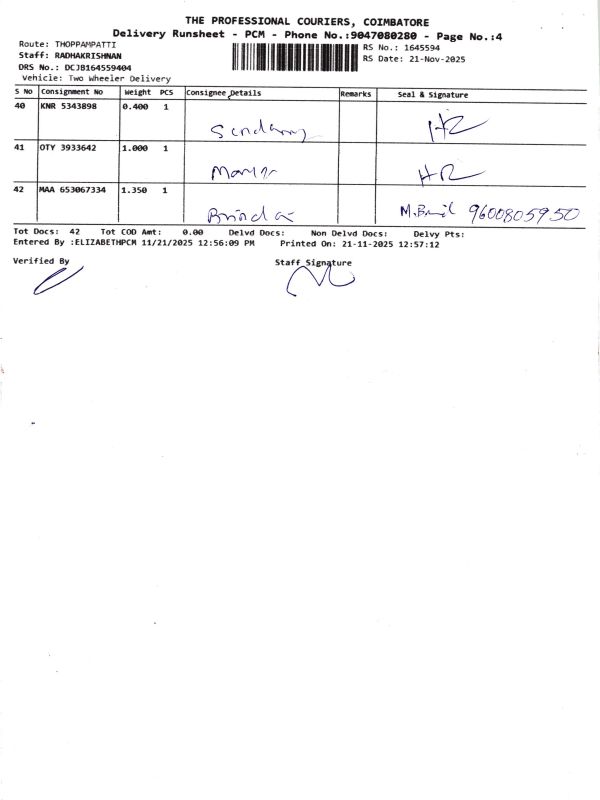 THE PROFESSIONAL COURIERS, COIMBATORE
Delivery Runsheet - PCM - Phone No.:9047080280 - Page No.:4
Route: THOPPAMPATTI
Staff: RADHAKRISHNAN
DRS No.: DCJB164559404
Vehicle: Two Wheeler Delivery
RS No.: 1645594
RS Date: 21-Nov-2025
S No Consignment No Weight PCS Consignee Details Remarks Seal & Signature
40 KNR 5343898 0.400 1
41 OTY 3933642 1.000 1
42 MAA 653067334 1.350 1
Brinda 9600805950
Tot Docs: 42 Tot COD Amt: 0.00 Delvd Docs: Non Delvd Docs: Delvy Pts:
Entered By :ELIZABETHPCM 11/21/2025 12:56:09 PM Printed On: 21-11-2025 12:57:12
Verified By Staff Signature